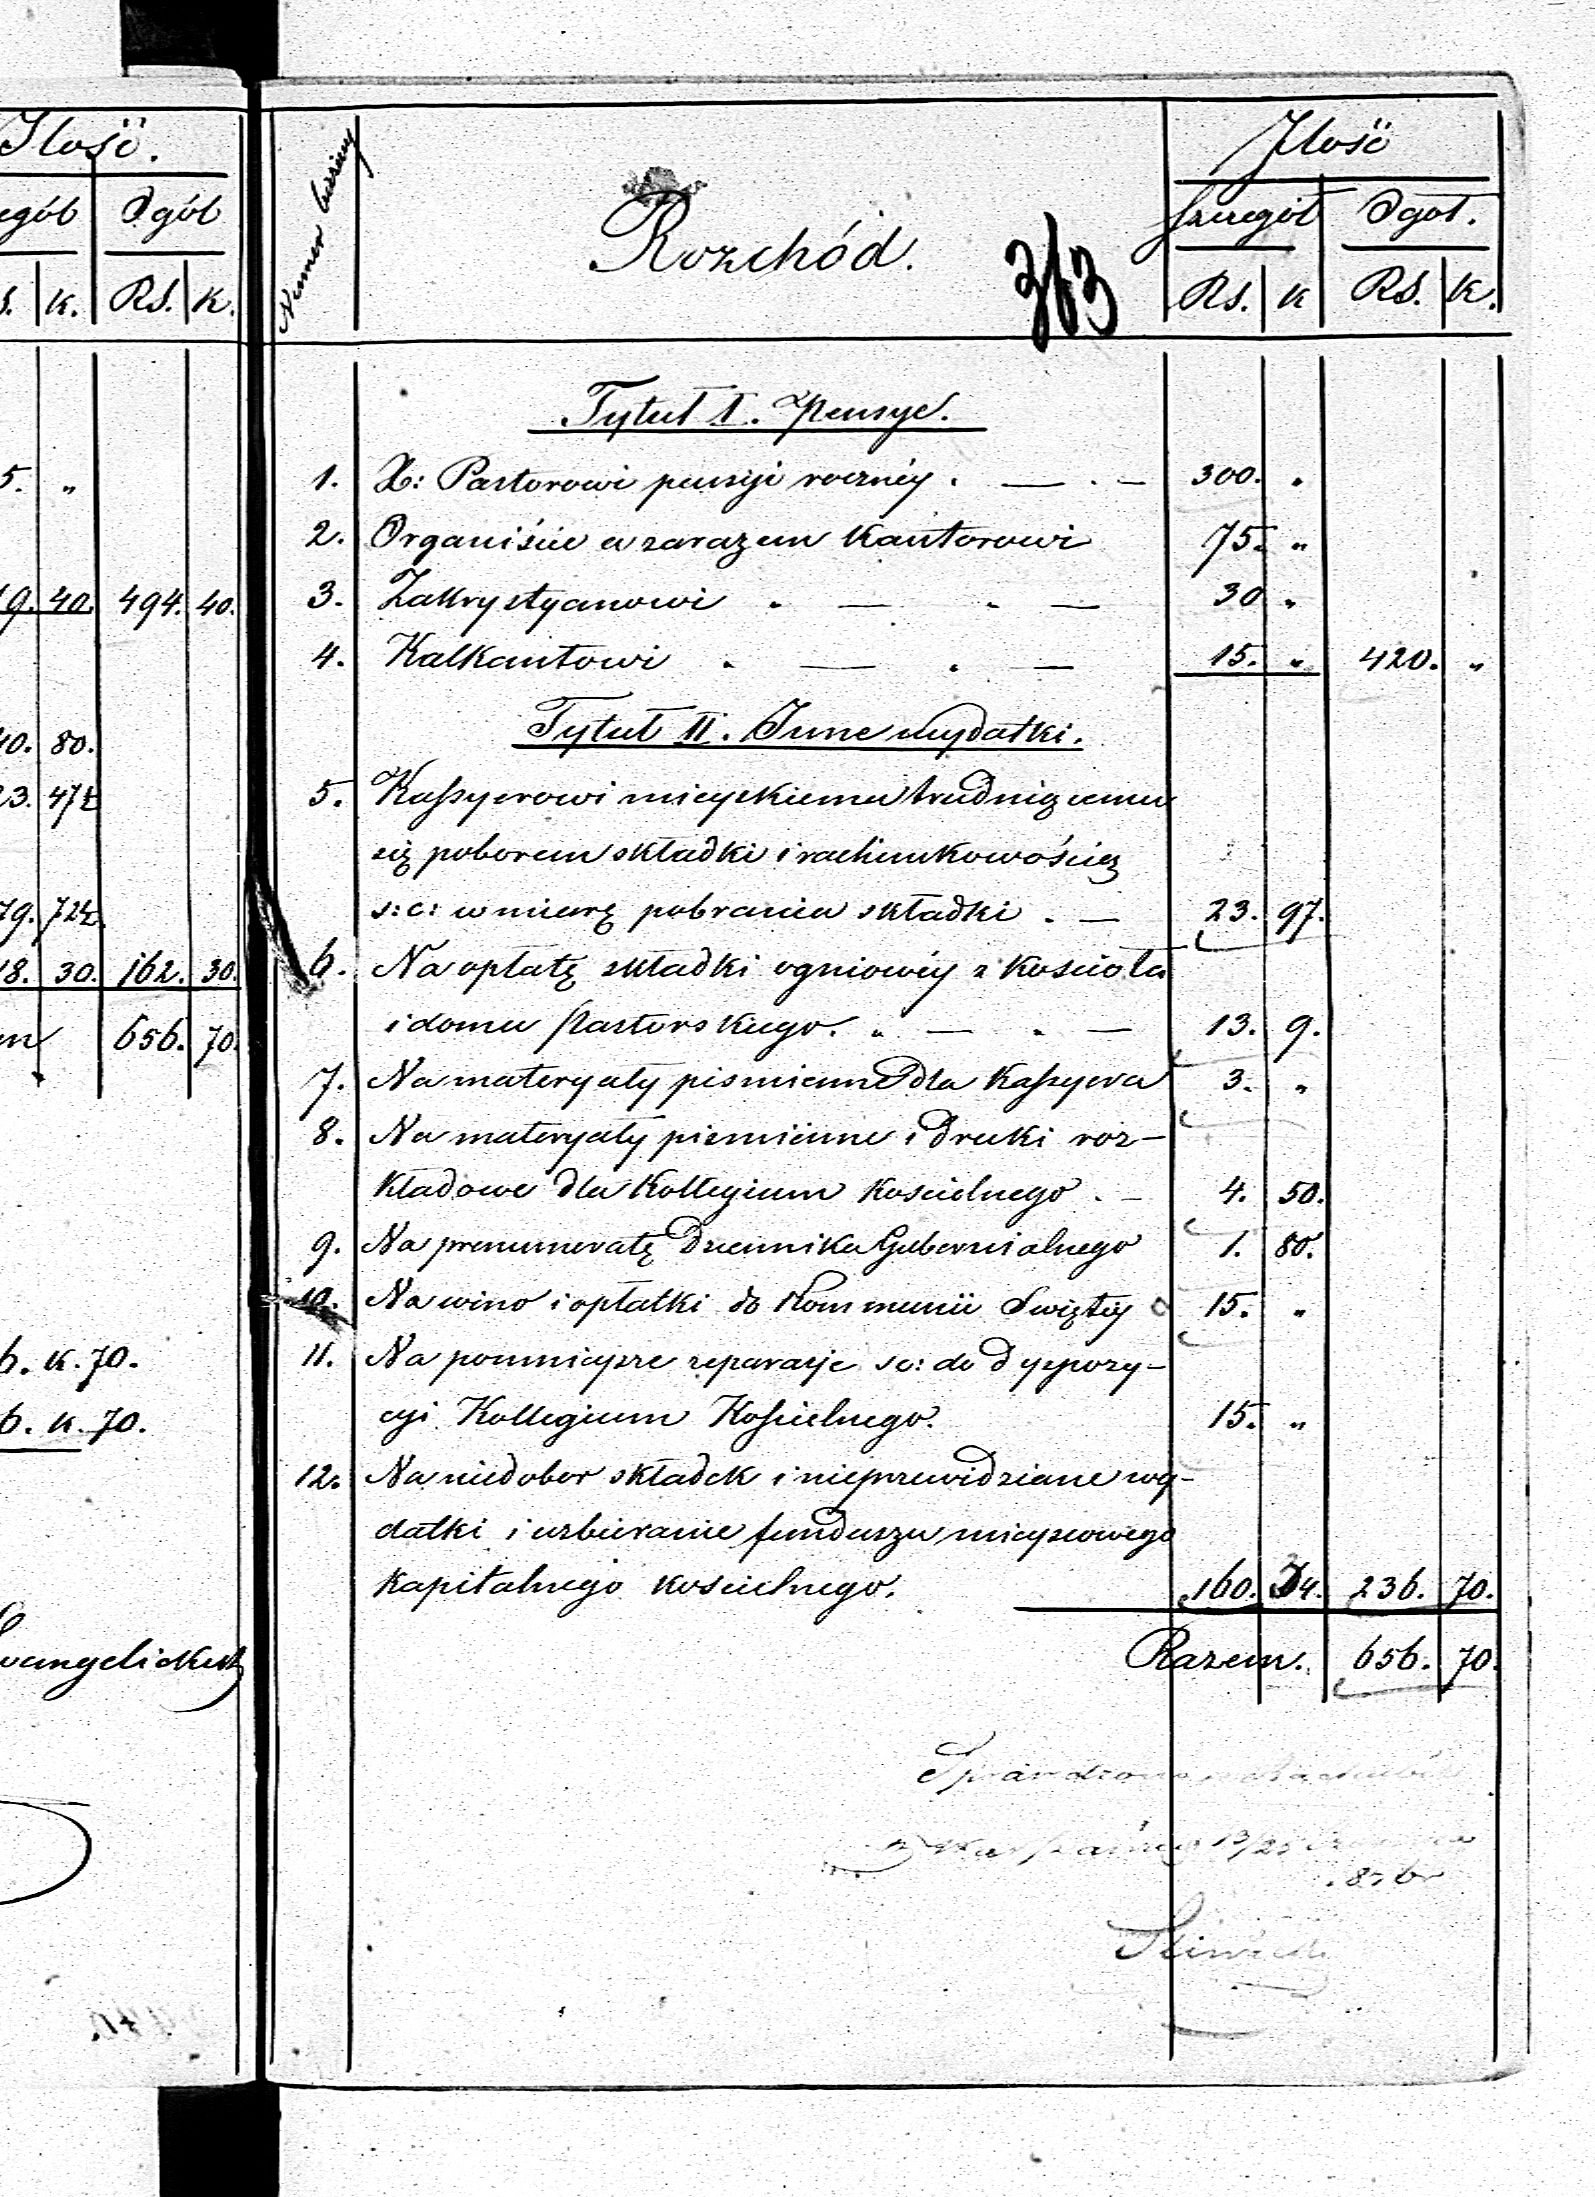 Ilość.
egół Ogół
S. K. RS. K.
5. "
19. 40. 494. 40.
40. 80.
23. 47½
79. 72½
18. 30. 162. 30.
em 656. 70.
6. K. 70.
6. K. 70.
Ewangelickiego
Numer bieżący
Rozchód.
363
Ilość
Szczegół Ogół.
RS. K RS. K.
Tytuł I. Pensye.
1. X: Pastorowi pensyi roczney . — . — 300. "
2. Organiście a zarazem Kantorowi 75. "
3. Zakrystyanowi . — . — 30 "
4. Kalkantowi . — . — 15. " 420. "
Tytuł II. Inne wydatki.
5. Kassyerowi mieyskiemu trudniącemu
się poborem składki i rachunkowością
s: c: w miarę pobrania składki . — 23. 97.
6. Na opłatę składki ogniowéy z kościoła
i domu Pastorskiego. . — . — 13. 9.
7. Na materyały pismienne dla Kassyera 3. "
8. Na materyały piśmienne i druki roz-
kładowe dla Kollegium Kościelnego . — 4. 50.
9. Na prenumeratę Dziennika Gubernialnego 1. 80.
10. Na wino i opłatki do Kommunii Swiętéy 15. "
11. Na pomnieysze reparacje sc: do dyspozy-
cyi Kollegium Kościelnego. 15. "
12. Na niedobor składek i nieprzewidziane wy-
datki i uzbieranie funduszu mieyscowego
Kapitalnego kościelnego. 160. 34. 236. 70.
Razem. 656. 70.
Sprawdzono
13/25